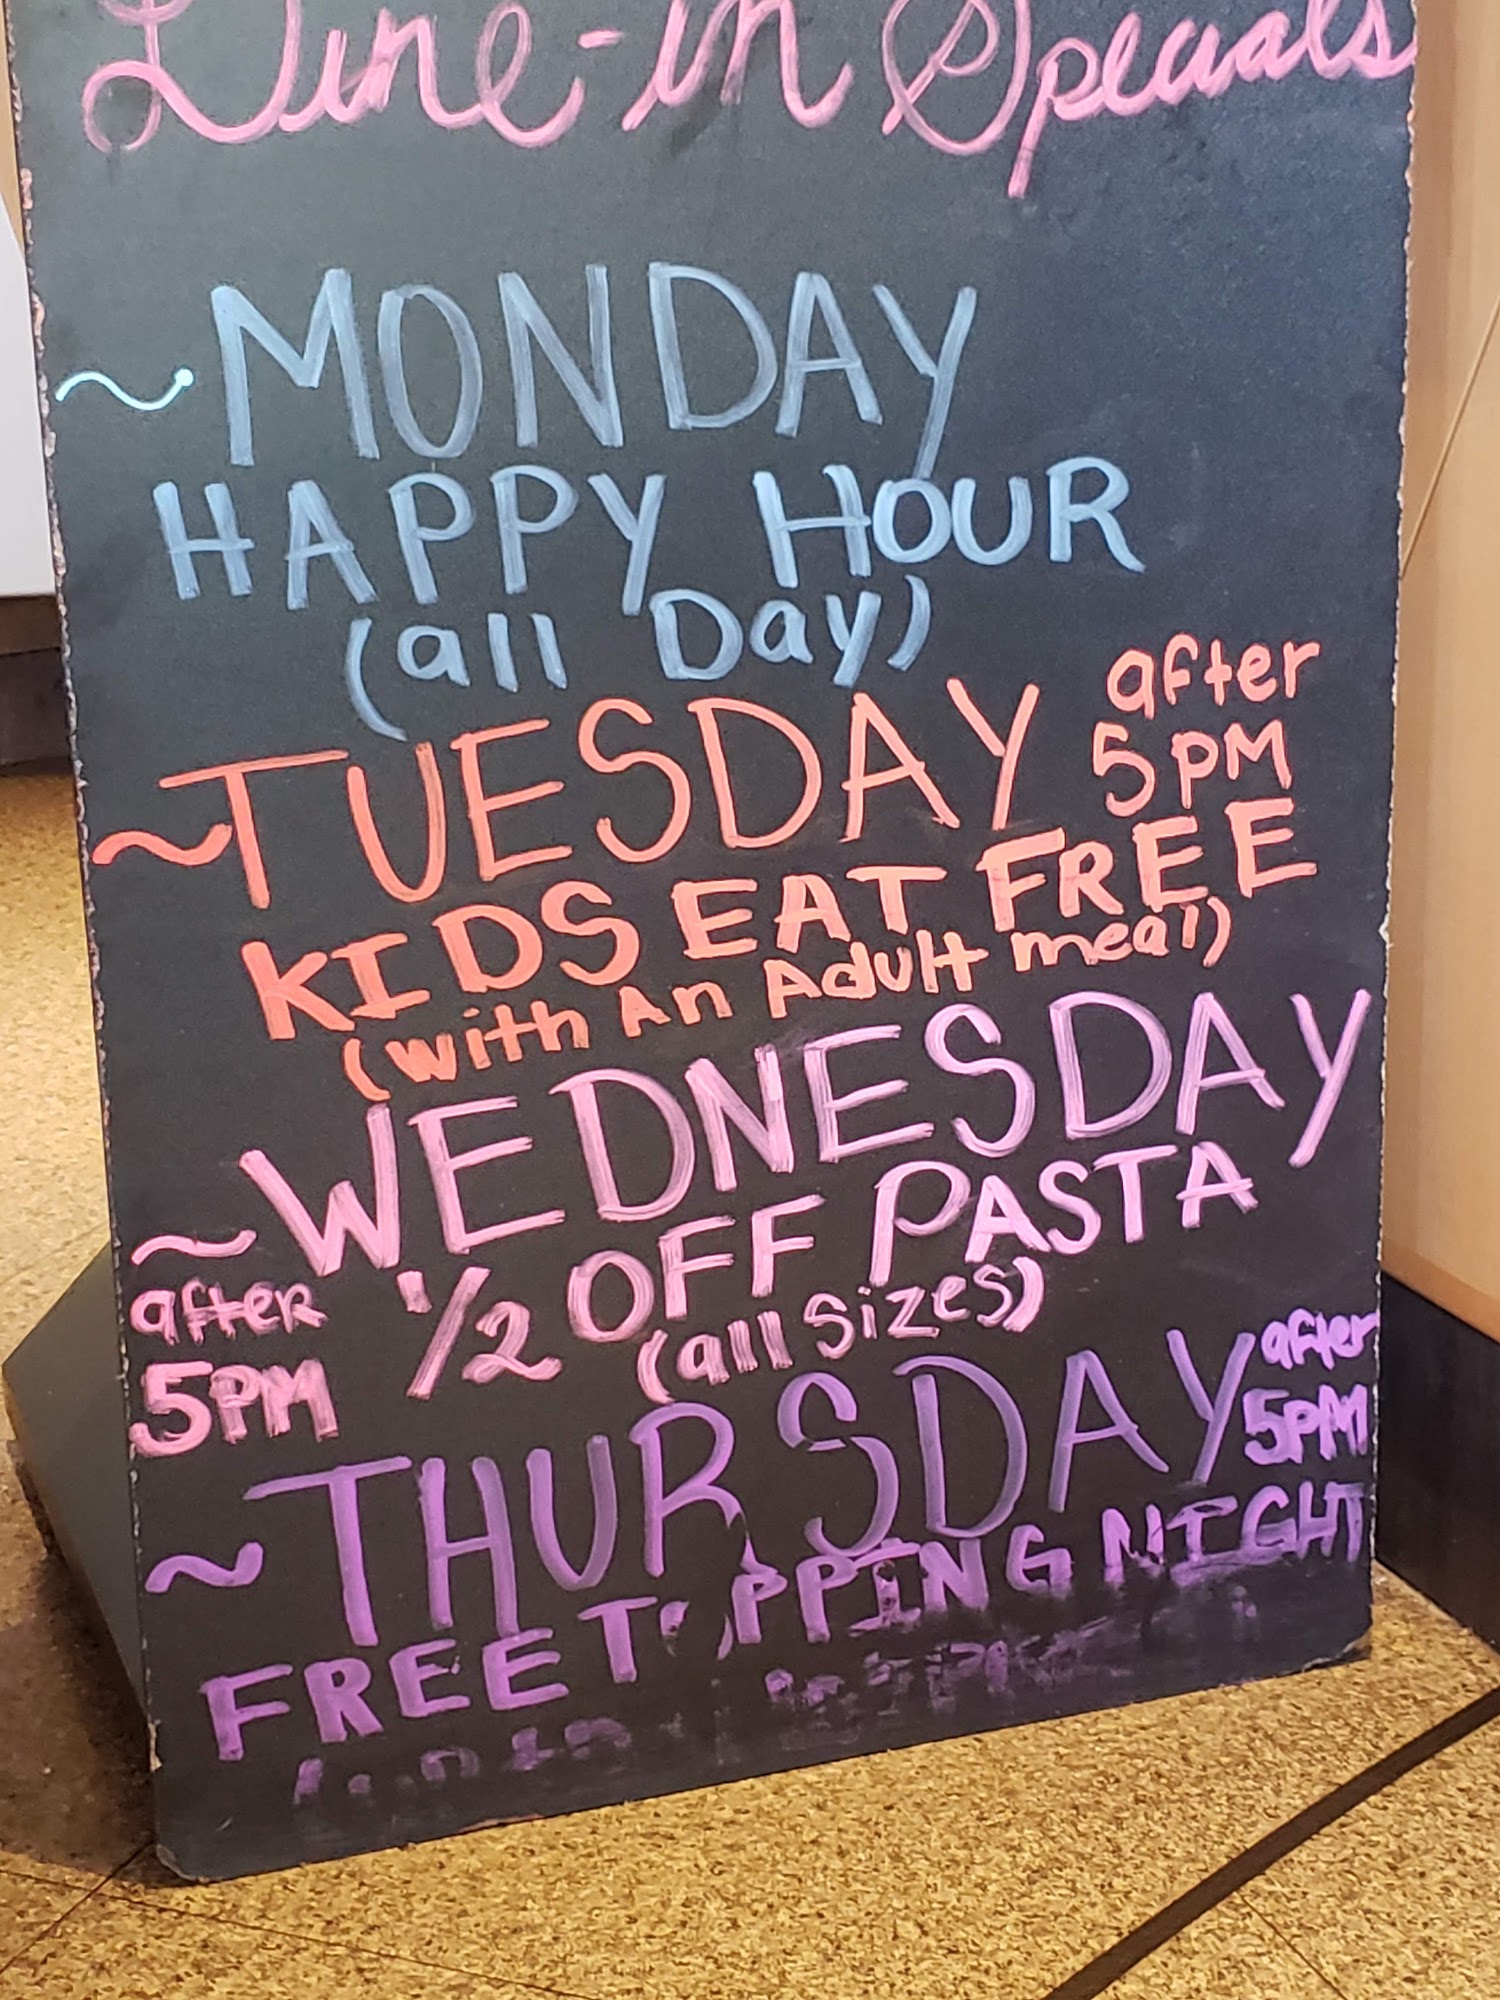 Dine-in Specials
~MONDAY
HAPPY HOUR
(all Day)
~TUESDAY after 5PM
KIDS EAT FREE
(with An Adult meal)
~WEDNESDAY
after 5PM 1/2 OFF PASTA
(all sizes)
~THURSDAY after 5PM
FREE TOPPING NIGHT